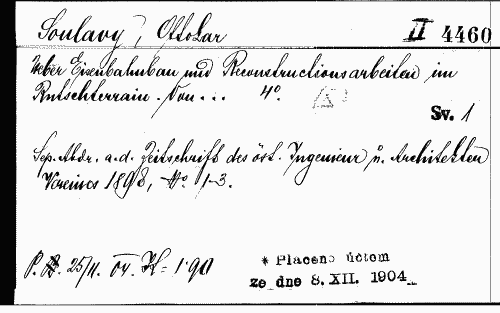 Soulavy, Ottokar II 4460
Ueber Eisenbahnbau und Reconstructionsarbeiten im
Rutschterrain. Von... 4º.
Sv. 1
Sep. Abdr. a. d. Zeitschrift des öst. Ingenieur u. Architekten
Vereines 1898, Nº 1-3.
P. 25/11. 04. K = 1·90
* Placeno účtem
ze dne 8. XII. 1904